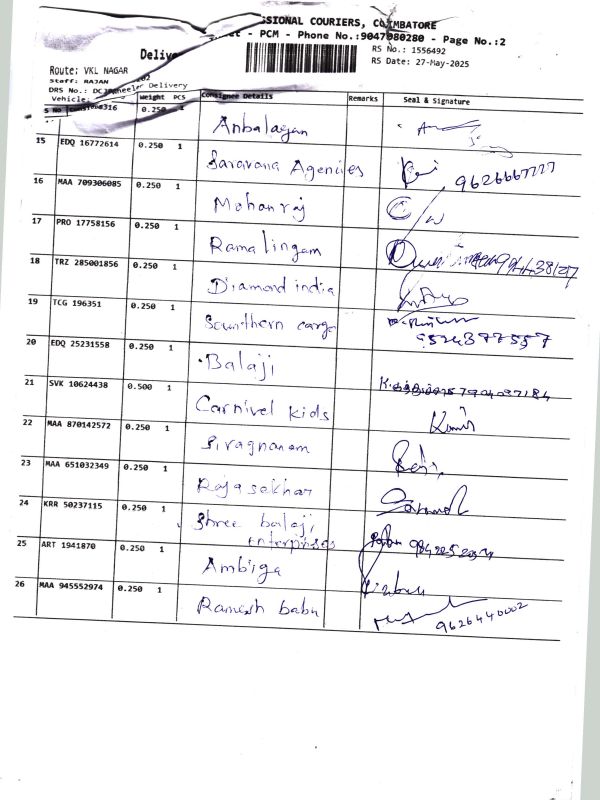 SSIONAL COURIERS, COIMBATORE
PCM - Phone No.:9047080280 - Page No.:2
Deliver
RS No.: 1556492
RS Date: 27-May-2025
Route: VKL NAGAR
Staff: RAJAN
DRS No.: Delivery
Vehicle:
S No Weight PCS Consignee Details Remarks Seal & Signature
0.250 1 Anbalagan
15 EDQ 16772614 0.250 1 Saravana Agencies 9626667777
16 MAA 709306085 0.250 1 Mohanraj
17 PRO 17758156 0.250 1 Ramalingam
18 TRZ 285001856 0.250 1 Diamond india
19 TCG 196351 0.250 1 Sounthern cargo 9524377557
20 EDQ 25231558 0.250 1 Balaji
21 SVK 10624438 0.500 1 Carnivel kids
22 MAA 870142572 0.250 1 Siragnanam
23 MAA 651032349 0.250 1 Rajasekhar
24 KRR 50237115 0.250 1 Shree balaji
enterprises
25 ART 1941870 0.250 1 Ambiga
26 MAA 945552974 0.250 1 Ramesh babu 9626440002